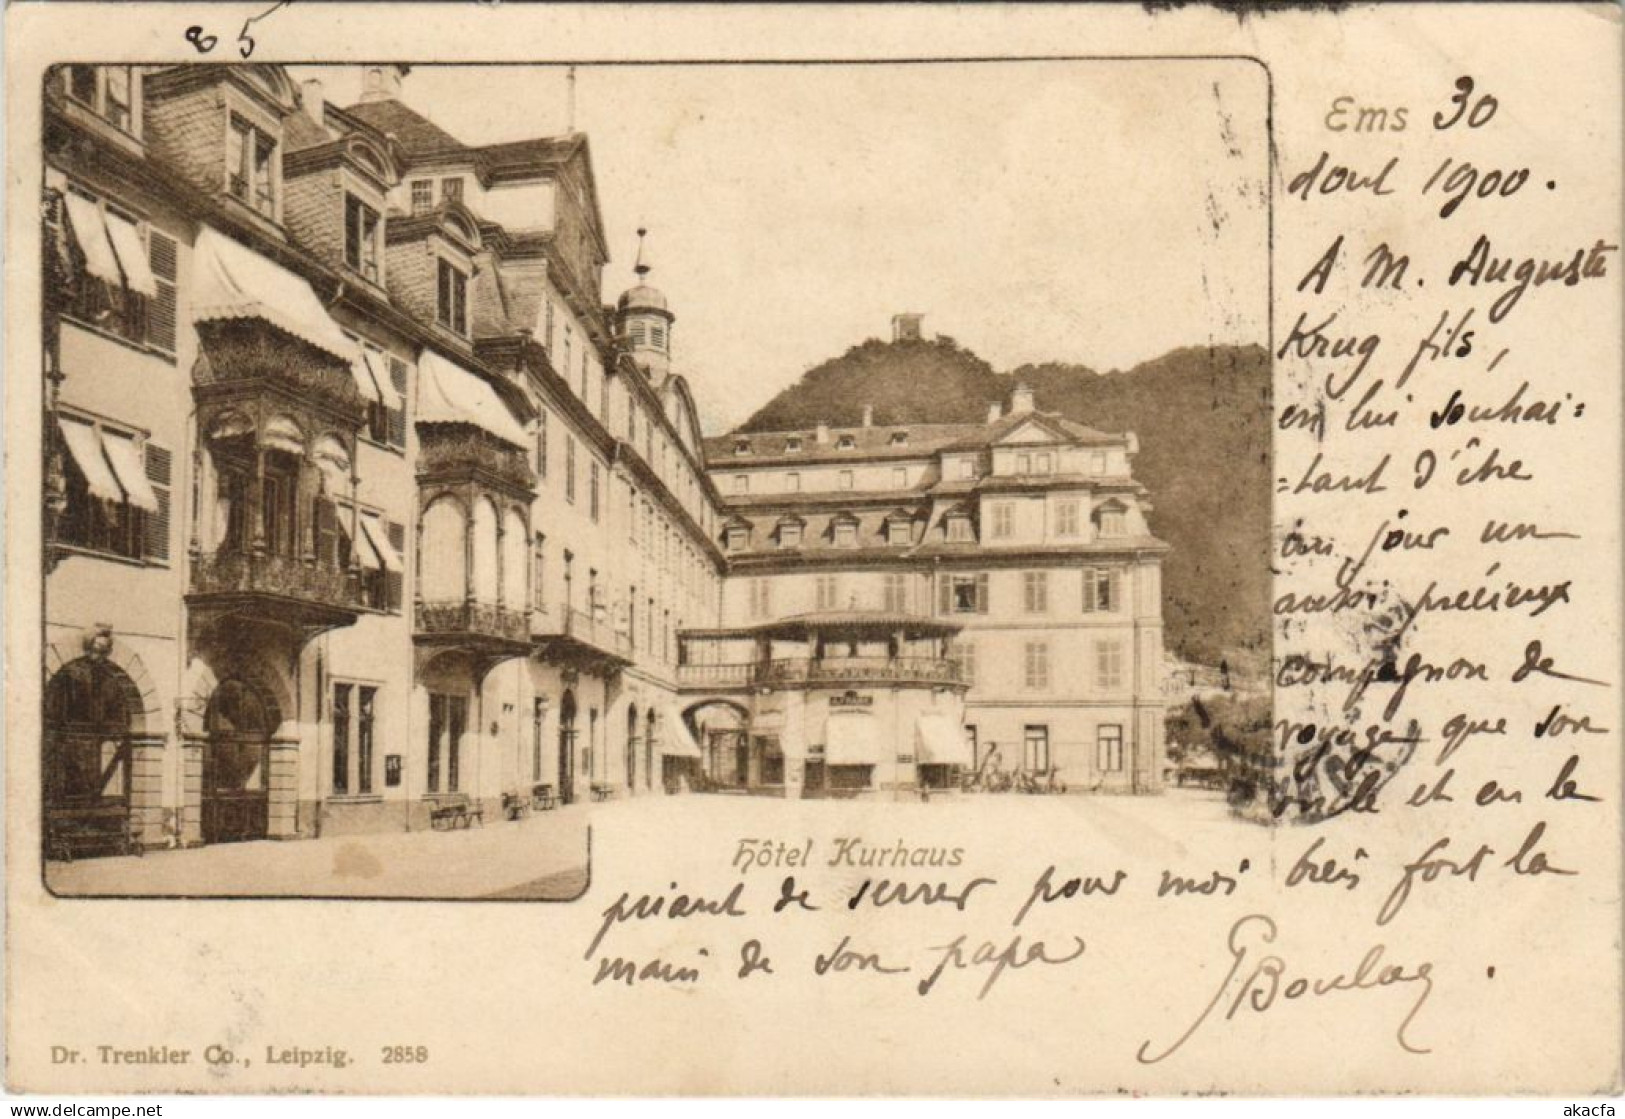 85
Ems 30
août 1900.
A M. Auguste
Krug fils,
en lui souhai=
=tant d'être
un jour un
aussi précieux
compagnon de
voyage que son
oncle et en le
Hôtel Kurhaus
priant de serrer pour moi bien fort la
main de son papa
GBoulay.
Dr. Trenkler Co., Leipzig. 2858
www.delcampe.net
akacfa